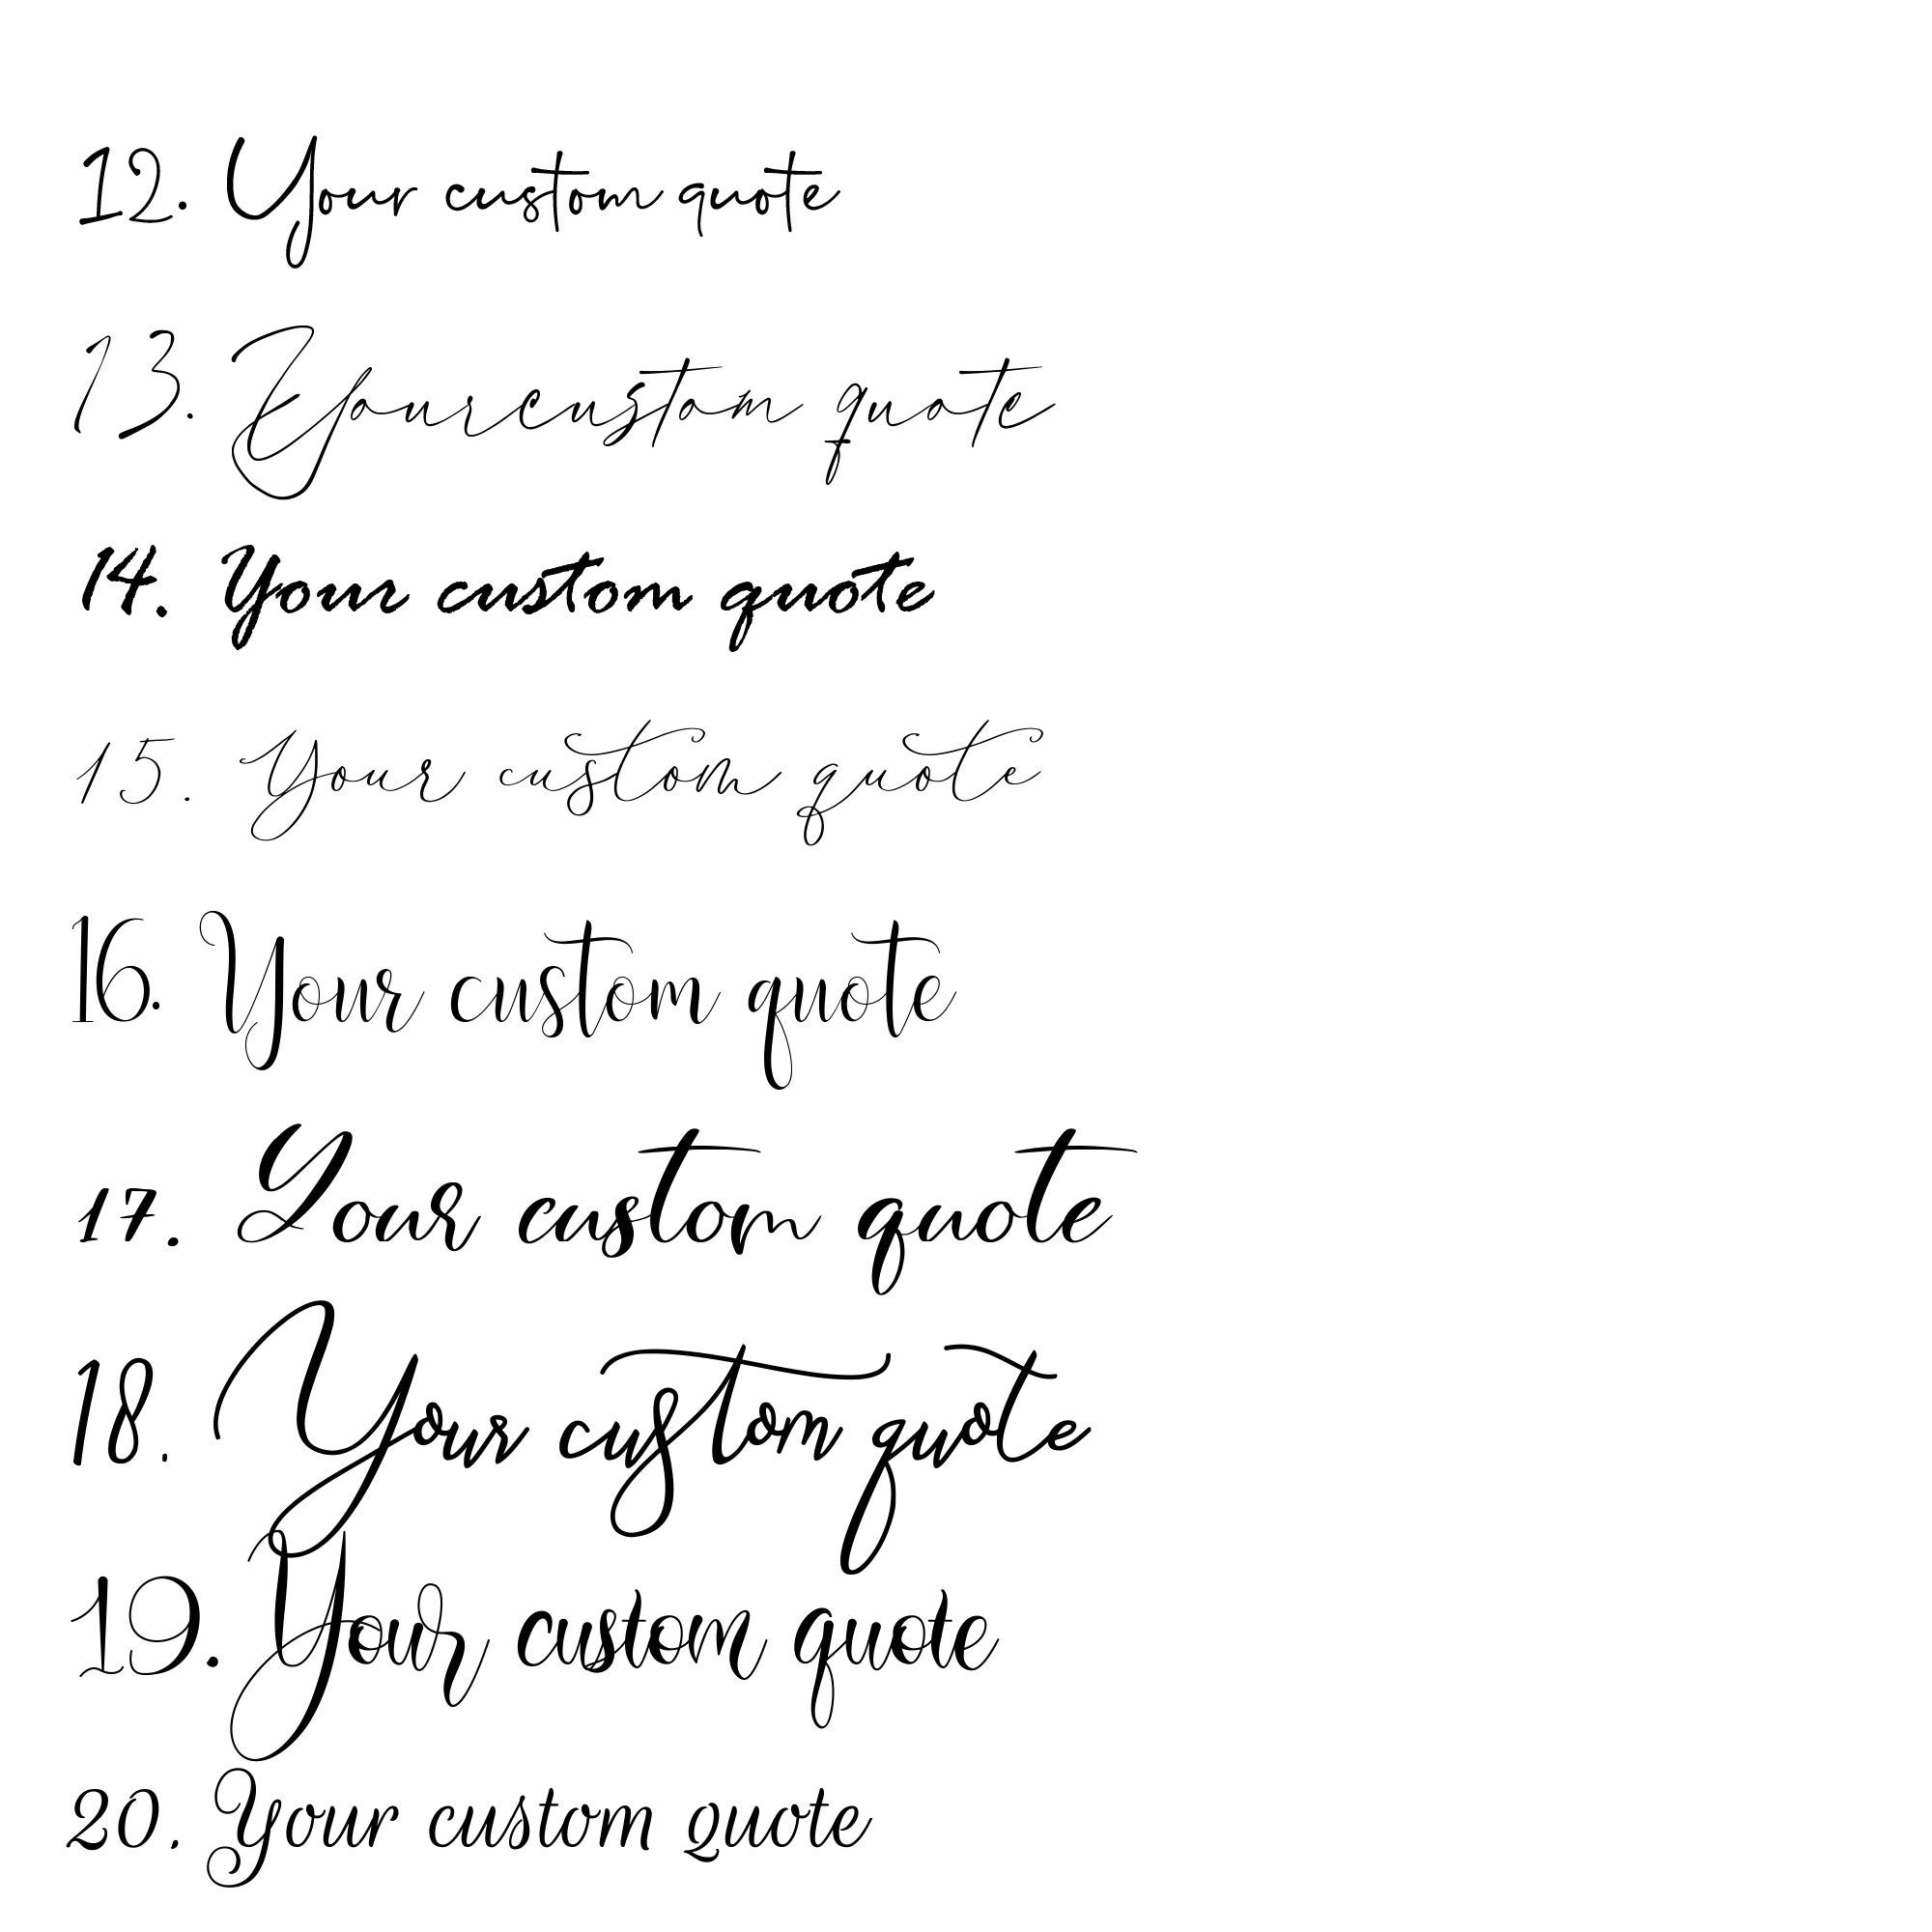 12. Your custom quote
13. Your custom quote
14. Your custom quote
15. Your custom quote
16. Your custom quote
17. Your custom quote
18. Your custom quote
19. Your custom quote
20. Your custom quote